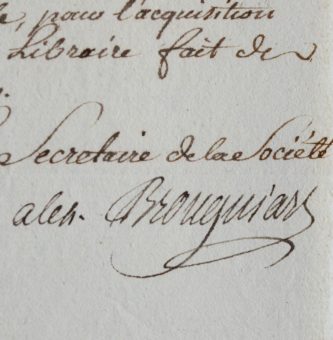 e, pour l'acquisition
Libraire fait de
Secretaire de la Société
alex. Brongniart